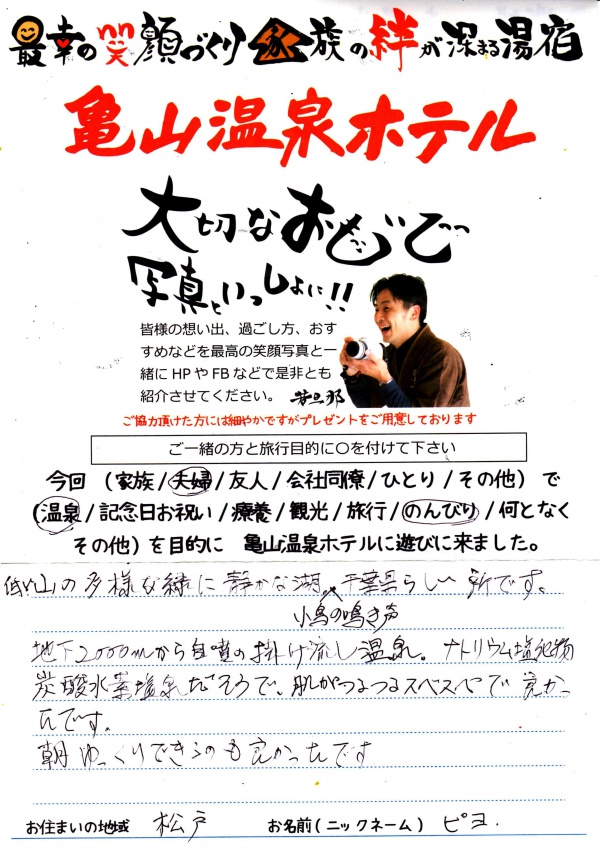 最幸の笑顔づくり 家族の絆が深まる湯宿
亀山温泉ホテル
大切なおもいで
写真といっしょに!!
皆様の想い出、過ごし方、おす
すめなどを最高の笑顔写真と一
緒に HP や FB などで是非とも
紹介させてください。 若旦那
ご協力頂けた方には細やかですがプレゼントをご用意しております
ご一緒の方と旅行目的に○を付けて下さい
今回 (家族/夫婦/友人/会社同僚/ひとり/その他) で
(温泉/記念日お祝い/療養/観光/旅行/のんびり/何となく
その他) を目的に 亀山温泉ホテルに遊びに来ました。
低い山の多様な緑に静かな湖。千葉県らしい所です。
小鳥の鳴き声
地下2000mから自噴の掛け流し温泉。ナトリウム塩化物
炭酸水素塩泉だそうで、肌がつるつるスベスベで良かっ
たです。
朝ゆっくりできるのも良かったです
お住まいの地域 松戸 お名前(ニックネーム) ピヨ.